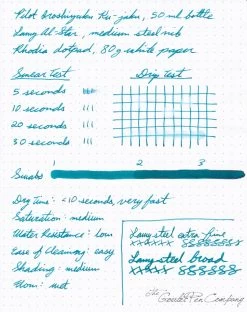 Pilot Iroshizuku Ku-jaku, 50 ml bottle
Lamy Al-Star, medium steel nib
Rhodia dotpad, 80g white paper
Smear test
Drip test
5 seconds
10 seconds
20 seconds
30 seconds
Swabs
1
2
3
Dry Time: <10 seconds, very fast
Saturation: medium
Water Resistance: low
Ease of Cleaning: easy
Shading: medium
Flow: wet
Lamy steel extra fine
xxxxxx 8888888
Lamy steel broad
xxxxxx 8888888
The Goulet Pen Company